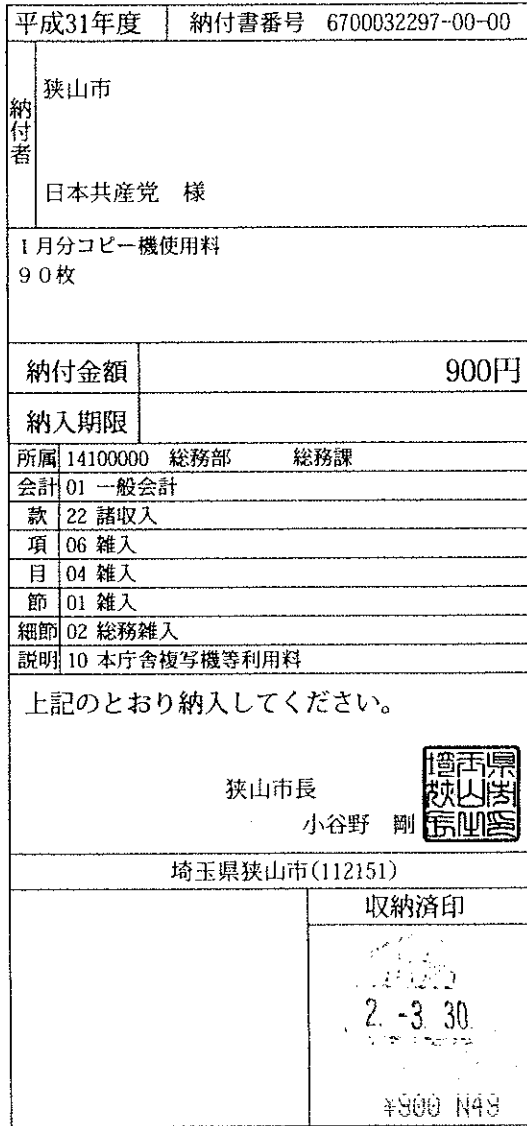 平成31年度 納付書番号 6700032297-00-00
納付者
狭山市
日本共産党 様
1月分コピー機使用料
90枚
納付金額 900円
納入期限
所属 14100000 総務部 総務課
会計 01 一般会計
款 22 諸収入
項 06 雑入
目 04 雑入
節 01 雑入
細節 02 総務雑入
説明 10 本庁舎複写機等利用料
上記のとおり納入してください。
狭山市長
小谷野 剛
埼玉県狭山市(112151)
収納済印
2. -3. 30.
¥900 N49